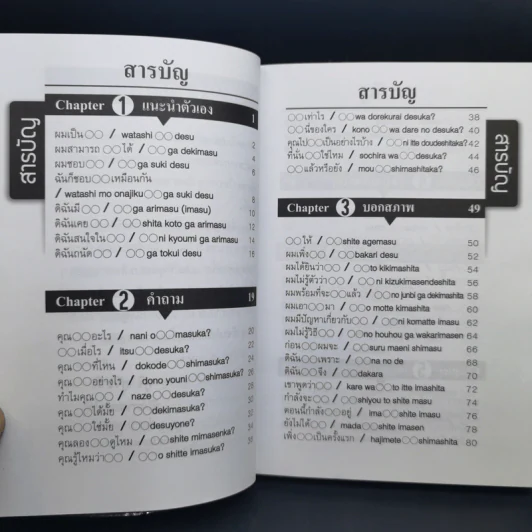 สารบัญ
สารบัญ
Chapter 1 แนะนำตัวเอง 1
ผมเป็น○○ / watashi ○○ desu 2
ผมสามารถ ○○ได้ / ○○ga dekimasu 4
ผมชอบ○○ / ○○ga suki desu 6
ฉันก็ชอบ○○เหมือนกัน
/ watashi mo onajiku○○ga suki desu 8
ดิฉันมี ○○ / ○○ga arimasu (imasu) 10
ดิฉันเคย ○○ / ○○shita koto ga arimasu 12
ดิฉันสนใจใน ○○ / ○○ni kyoumi ga arimasu 14
ดิฉันถนัด○○ / ○○ga tokui desu 16
Chapter 2 คำถาม 19
คุณ○○อะไร / nani o○○masuka? 20
○○เมื่อไร / itsu○○desuka? 22
คุณ○○ที่ไหน / dokode○○shimasuka? 24
คุณ○○อย่างไร / dono youni○○shimasuka? 26
ทำไมคุณ○○ / naze○○desuka? 28
คุณ○○ได้มั้ย / ○○dekimasuka?
คุณ○○ใช่มั้ย / ○○desuyone?
คุณลอง○○ดูไหม / ○○shite mimasenka?
คุณรู้ไหมว่า○○ / ○○o shitte imasuka?
สารบัญ
○○เท่าไร / ○○wa dorekurai desuka? 38
○○นี่ของใคร / kono ○○wa dare no desuka? 40
คุณไป○○เป็นอย่างไรบ้าง / ○○ni itte doudeshitaka? 42
ที่นั่น○○ใช่ไหม / sochira wa○○desuka? 44
○○แล้วหรือยัง / mou○○shimashitaka? 46
สารบัญ
Chapter 3 บอกสภาพ 49
○○ให้ / ○○shite agemasu 50
ผมเพิ่ง○○ / ○○bakari desu 52
ผมได้ยินว่า○○ / ○○to kikimashita 54
ผมไม่รู้ตัวว่า○○ / ○○ni kizukimasendeshita 56
ผมพร้อมที่จะ○○แล้ว / ○○no junbi ga dekimashita 58
ผมเอา○○มา / ○○o motte kimashita 60
ผมมีปัญหาเกี่ยวกับ○○ / ○○ni komatte imasu 62
ผมไม่รู้วิธี○○ / ○○no houhou ga wakarimasen 64
ก่อน○○ผมจะ / ○○suru maeni shimasu 66
ดิฉัน○○เพราะ / ○○na no de 68
ดิฉัน○○จึง / ○○dakara 70
เขาพูดว่า○○ / kare wa○○to itte imashita 72
กำลังจะ○○ / ○○shiyou to shite masu 74
ตอนนี้กำลัง○○อยู่ / ima○○shite imasu 76
ยังไม่ได้○○ / mada○○shite imasen 78
เพิ่ง○○เป็นครั้งแรก / hajimete○○shimashita 80